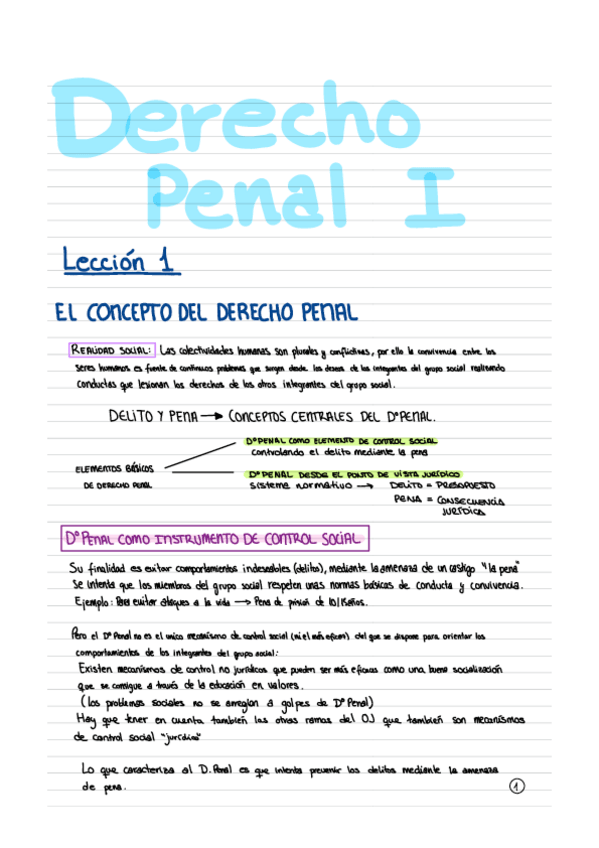 Derecho
Penal I
Lección 1
EL CONCEPTO DEL DERECHO PENAL
REALIDAD SOCIAL: Las colectividades humanas son plurales y conflictivas, por ello la convivencia entre los
seres humanos es fuente de continuos problemas que surgen desde los deseos de los integrantes del grupo social realizando
conductas que lesionan los derechos de los otros integrantes del grupo social.
DELITO Y PENA → CONCEPTOS CENTRALES DEL DºPENAL.
DºPENAL COMO ELEMENTO DE CONTROL SOCIAL
controlando el delito mediante la pena
ELEMENTOS BÁSICOS
DE DERECHO PENAL
DºPENAL DESDE EL PUNTO DE VISTA JURÍDICO
sistema normativo → DELITO = PRESUPUESTO
PENA = CONSECUENCIA
JURÍDICA
DºPENAL COMO INSTRUMENTO DE CONTROL SOCIAL
Su finalidad es evitar comportamientos indeseables (delitos), mediante la amenaza de un castigo "la pena"
Se intenta que los miembros del grupo social respeten unas normas básicas de conducta y convivencia.
Ejemplo: Para evitar ataques a la vida → Pena de prisión de 10/15años.
Pero el DºPenal no es el unico mecanismo de control social (ni el más eficaz) del que se dispone para orientar los
comportamientos de los integrantes del grupo social:
Existen mecanismos de control no jurídicos que pueden ser más eficaces como una buena socialización
que se consigue a través de la educación en valores.
(los problemas sociales no se arreglan a golpes de DºPenal)
Hay que tener en cuenta también las otras ramas del OJ que también son mecanismos
de control social "jurídico"
Lo que caracteriza al D.Penal es que intenta prevenir los delitos mediante la amenaza
de pena.
1